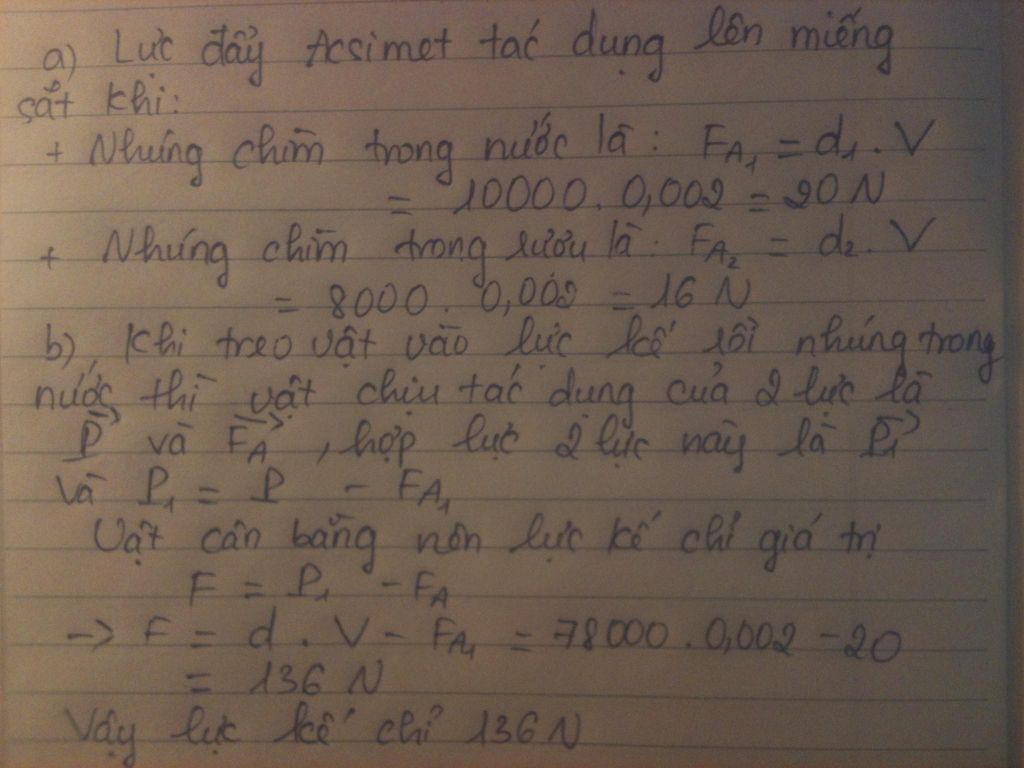 a) Lực đẩy Acsimet tác dụng lên miếng
sắt khi:
+ Nhúng chìm trong nước là: FA1 = d1 . V
= 10000 . 0,002 = 20 N
+ Nhúng chìm trong rượu là: FA2 = d2 . V
= 8000 . 0,002 = 16 N
b), Khi treo vật vào lực kế rồi nhúng trong
nước thì vật chịu tác dụng của 2 lực là
P⃗ và FA⃗, hợp lực 2 lực này là P1⃗
và P1 = P - FA1
Vật cân bằng nên lực kế chỉ giá trị
F = P1 - FA
-> F = d . V - FA1 = 78000 . 0,002 - 20
= 136 N
Vậy lực kế chỉ 136 N